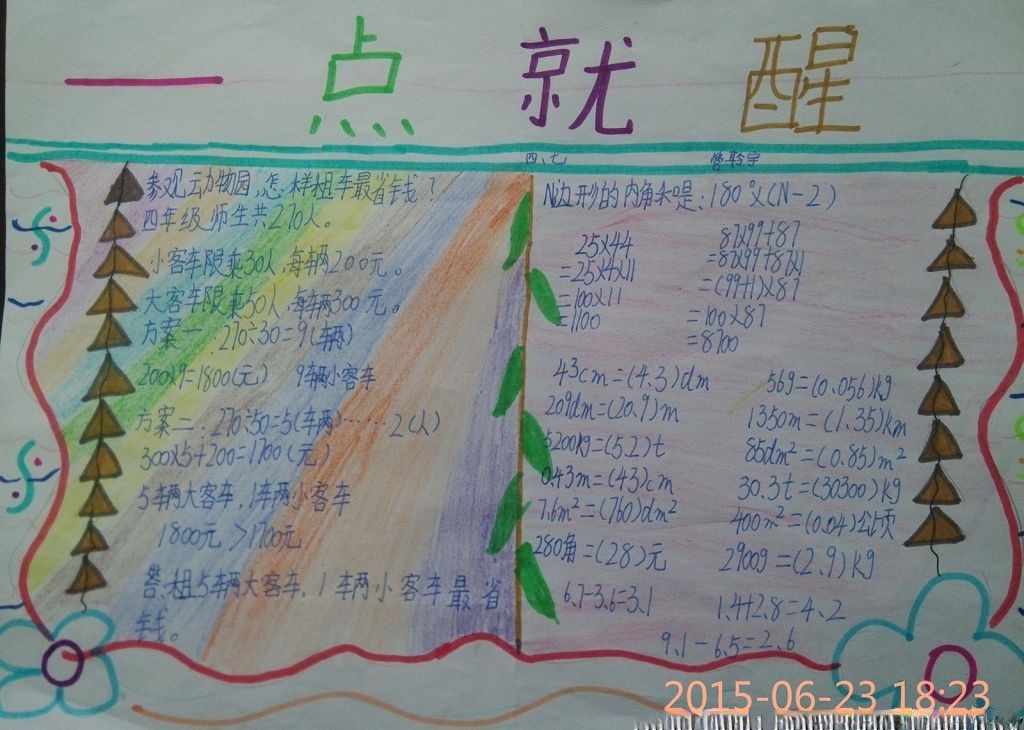 一点就醒
四、七
参观动物园,怎样租车最省钱?
四年级师生共270人。
小客车限乘30人,每辆200元。
大客车限乘50人,每辆300元。
方案一:270÷30=9(辆)
200×9=1800(元) 9辆小客车
方案二:270÷50=5(车两)……2(人)
300×5+200=1700(元)
5辆大客车,1车两小客车
1800元>1700元
答:租5车两大客车,1车两小客车最省
钱。
N边形的内角和是:180°×(N-2)
25×44
=25×4×11
=100×11
=1100
87×99+87
=87×99+87×1
=(99+1)×87
=100×87
=8700
43cm=(4.3)dm
209dm=(20.9)m
5200kg=(5.2)t
0.43m=(43)cm
7.6m²=(760)dm²
280角=(28)元
6.7-3.6=3.1
569=(0.056)kg
1350m=(1.35)km
85dm²=(0.85)m²
30.3t=(30300)kg
400m²=(0.04)公顷
2900g=(2.9)kg
1.4+2.8=4.2
9.1-6.5=2.6
2015-06-23 18:23